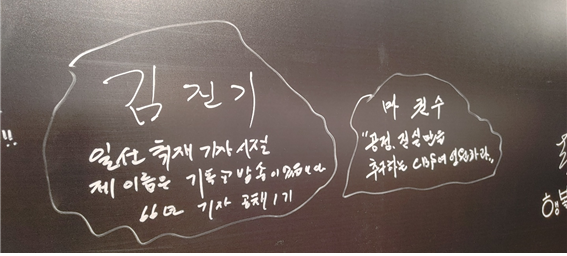 김진기
일선 취재 기자 시절
제 이름은 기독교 방송이었습니다
66년 기자 공채 1기
마 철수
"공정, 진실만을
추구하는 CBS여 영원하라"
!!
행복